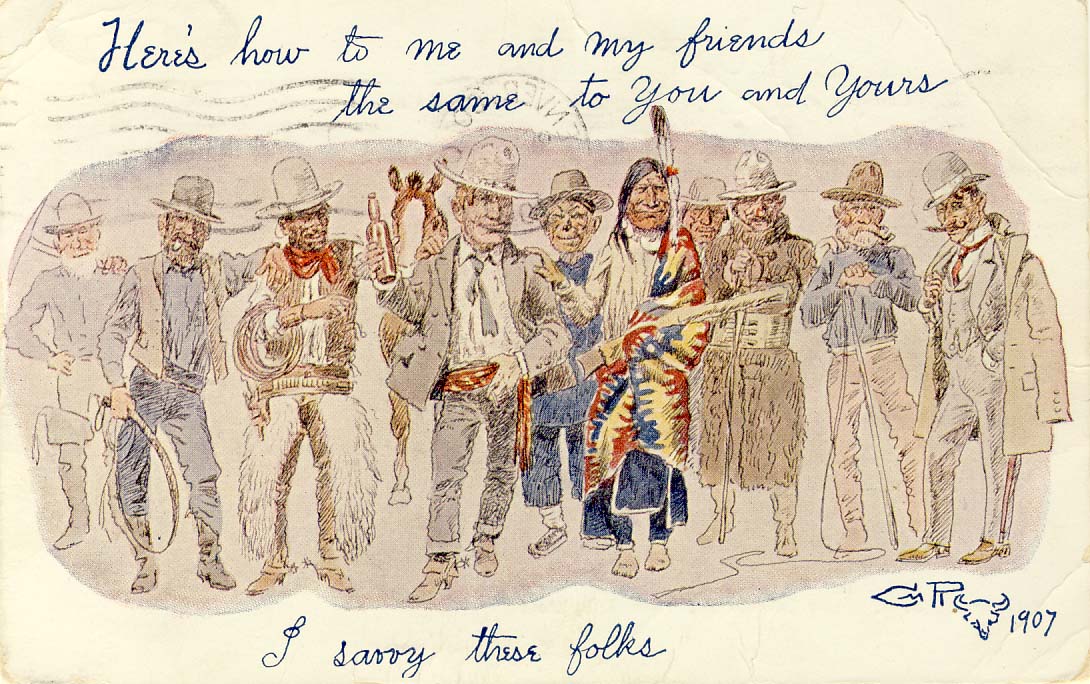 Here's how to me and my friends
the same to You and Yours
I savvy these folks
CMR
1907